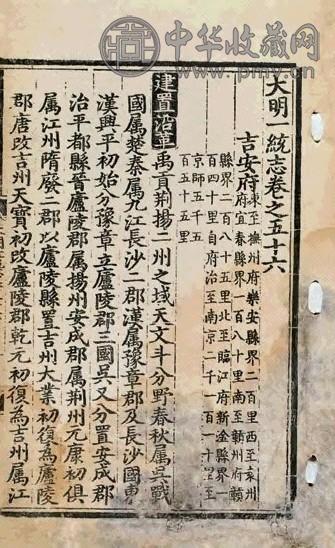 中华收藏网
大明一統志卷之五十六
吉安府
東至撫州府樂安縣界二百里西至袁州
府宜春縣界一百八十里南至贛州府贛
縣界二百八十五里北至臨江府新淦縣界一
百四十里自府治至南京二千一百一十里至
京師五千五
百五十五里
建置沿革 禹貢荆揚二州之域天文斗分野春秋属吳戰
國属楚秦属九江長沙二郡漢属豫章郡及長沙國東
漢興平初始分豫章立廬陵郡三國吳又分置安成郡
治平都縣晉廬陵郡属揚州安成郡属荆州元康初俱
属江州隋廢二郡以廬陵縣置吉州大業初復為廬陵
郡唐改吉州天寳初改廬陵郡乾元初復為吉州属江